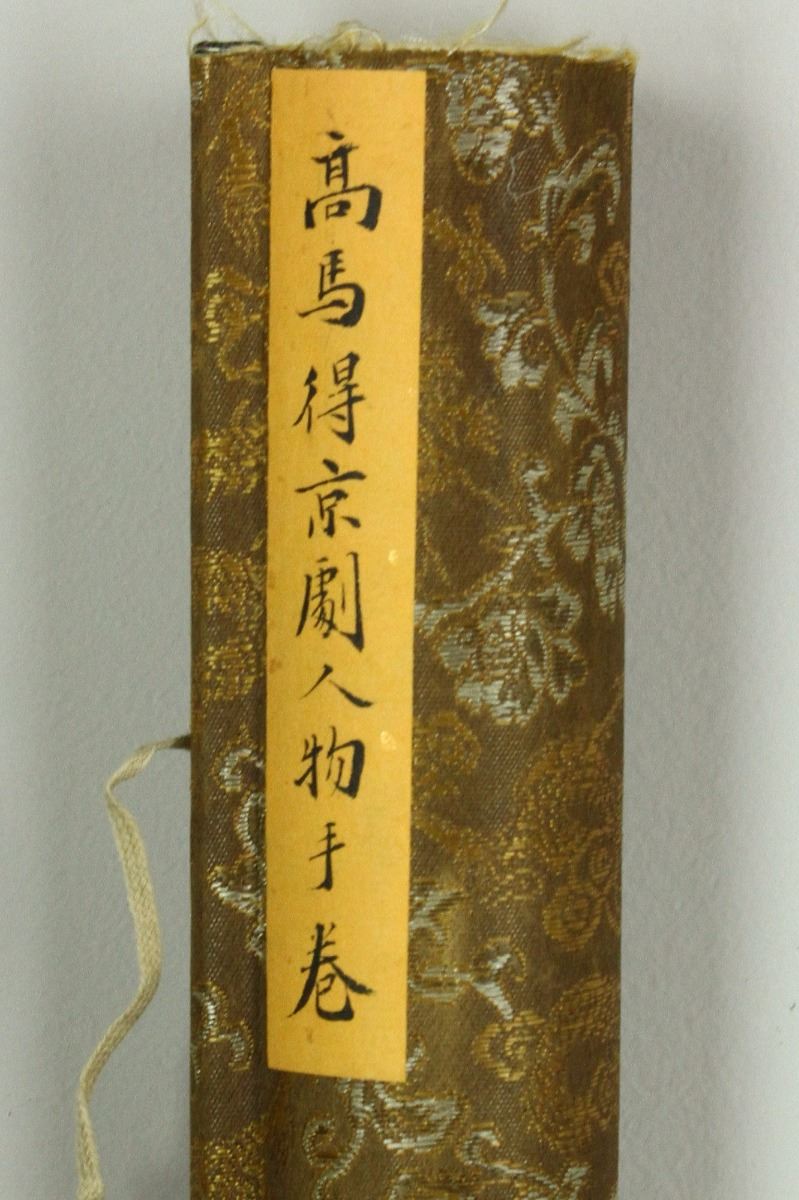 高馬得京劇人物手卷